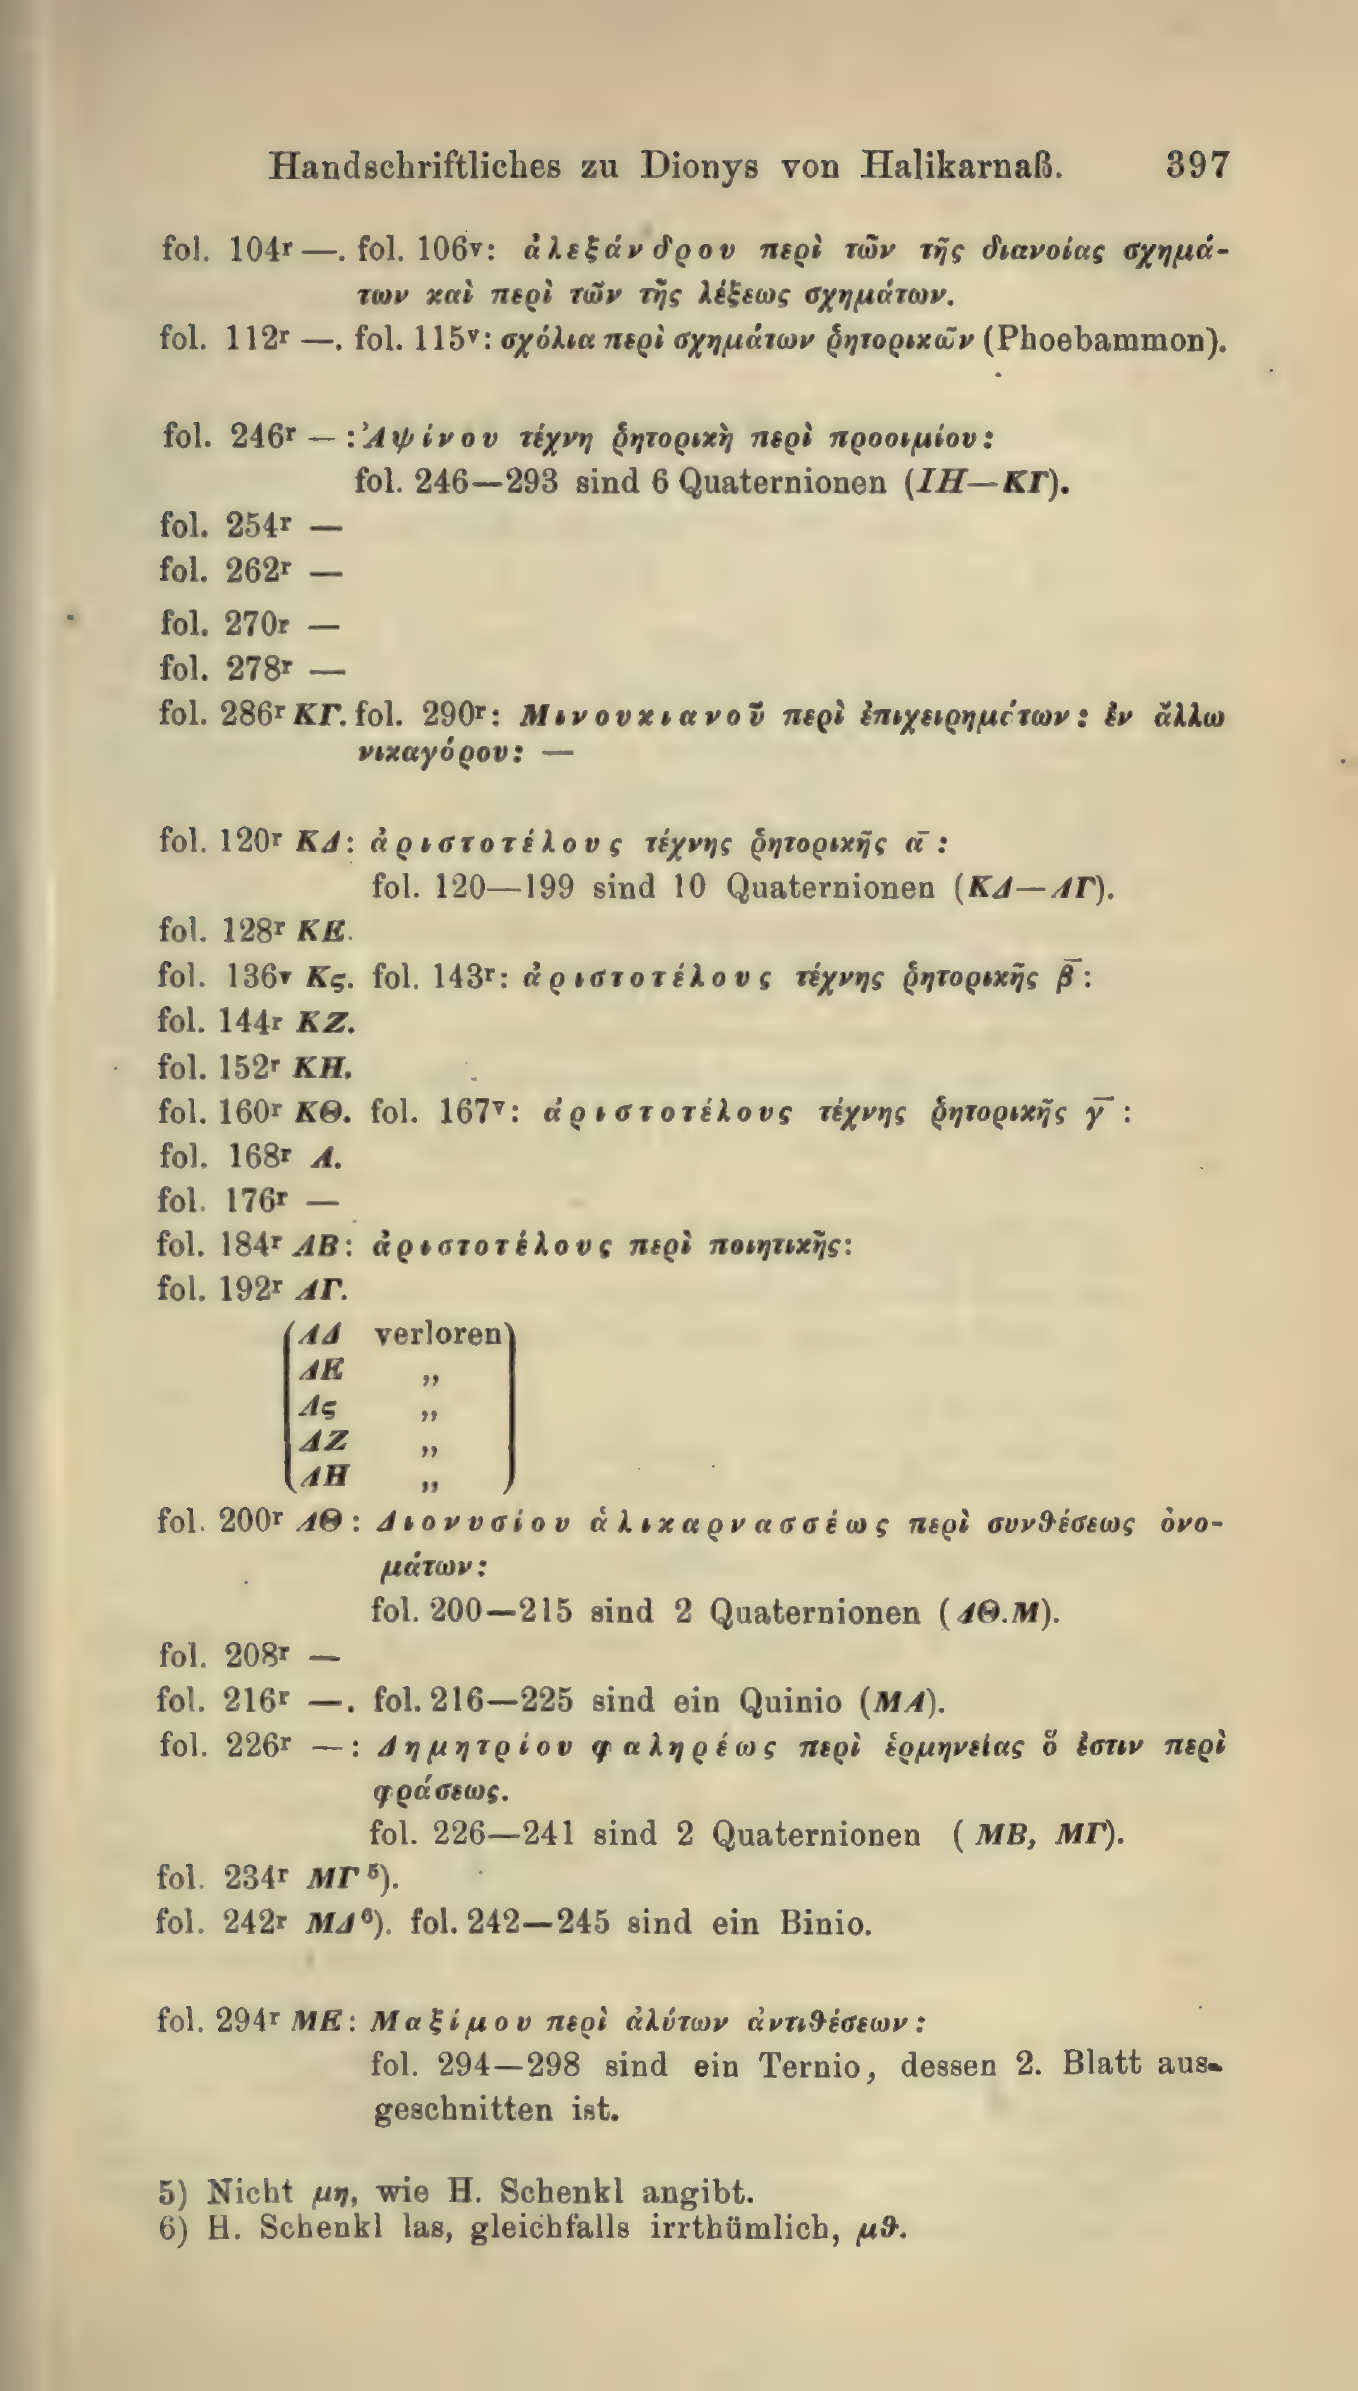 Handschriftliches zu Dionys von Halikarnaß. 397
fol. 104r —. fol. 106v: ἀλεξάνδρου περὶ τῶν τῆς διανοίας σχημά-
των καὶ περὶ τῶν τῆς λέξεως σχημάτων.
fol. 112r —. fol. 115v: σχόλια περὶ σχημάτων ῥητορικῶν (Phoebammon).
fol. 246r — : Ἀψίνου τέχνη ῥητορικὴ περὶ προοιμίου:
fol. 246—293 sind 6 Quaternionen (ΙΗ—ΚΓ).
fol. 254r —
fol. 262r —
fol. 270r —
fol. 278r —
fol. 286r ΚΓ. fol. 290r: Μινουκιανοῦ περὶ ἐπιχειρημάτων: ἐν ἄλλω
νικαγόρου: —
fol. 120r ΚΔ: ἀριστοτέλους τέχνης ῥητορικῆς α̅ :
fol. 120—199 sind 10 Quaternionen (ΚΔ—ΛΓ).
fol. 128r ΚΕ.
fol. 136v Κς. fol. 143r: ἀριστοτέλους τέχνης ῥητορικῆς β̅ :
fol. 144r ΚΖ.
fol. 152r ΚΗ.
fol. 160r ΚΘ. fol. 167v: ἀριστοτέλους τέχνης ῥητορικῆς γ̅ :
fol. 168r Λ.
fol. 176r —
fol. 184r ΛΒ: ἀριστοτέλους περὶ ποιητικῆς:
fol. 192r ΛΓ.
(ΛΔ verloren)
ΛΕ „
Λς „
ΛΖ „
ΛΗ „
fol. 200r ΛΘ: Διονυσίου ἁλικαρνασσέως περὶ συνθέσεως ὀνο-
μάτων:
fol. 200—215 sind 2 Quaternionen (ΛΘ.Μ).
fol. 208r —
fol. 216r —. fol. 216—225 sind ein Quinio (ΜΑ).
fol. 226r —: Δημητρίου φαληρέως περὶ ἑρμηνείας ὅ ἐστιν περὶ
φράσεως.
fol. 226—241 sind 2 Quaternionen (ΜΒ, ΜΓ).
fol. 234r ΜΓ 5).
fol. 242r ΜΔ 6). fol. 242—245 sind ein Binio.
fol. 294r ΜΕ: Μαξίμου περὶ ἀλύτων ἀντιθέσεων:
fol. 294—298 sind ein Ternio, dessen 2. Blatt aus-
geschnitten ist.
5) Nicht μη, wie H. Schenkl angibt.
6) H. Schenkl las, gleichfalls irrthümlich, μθ.